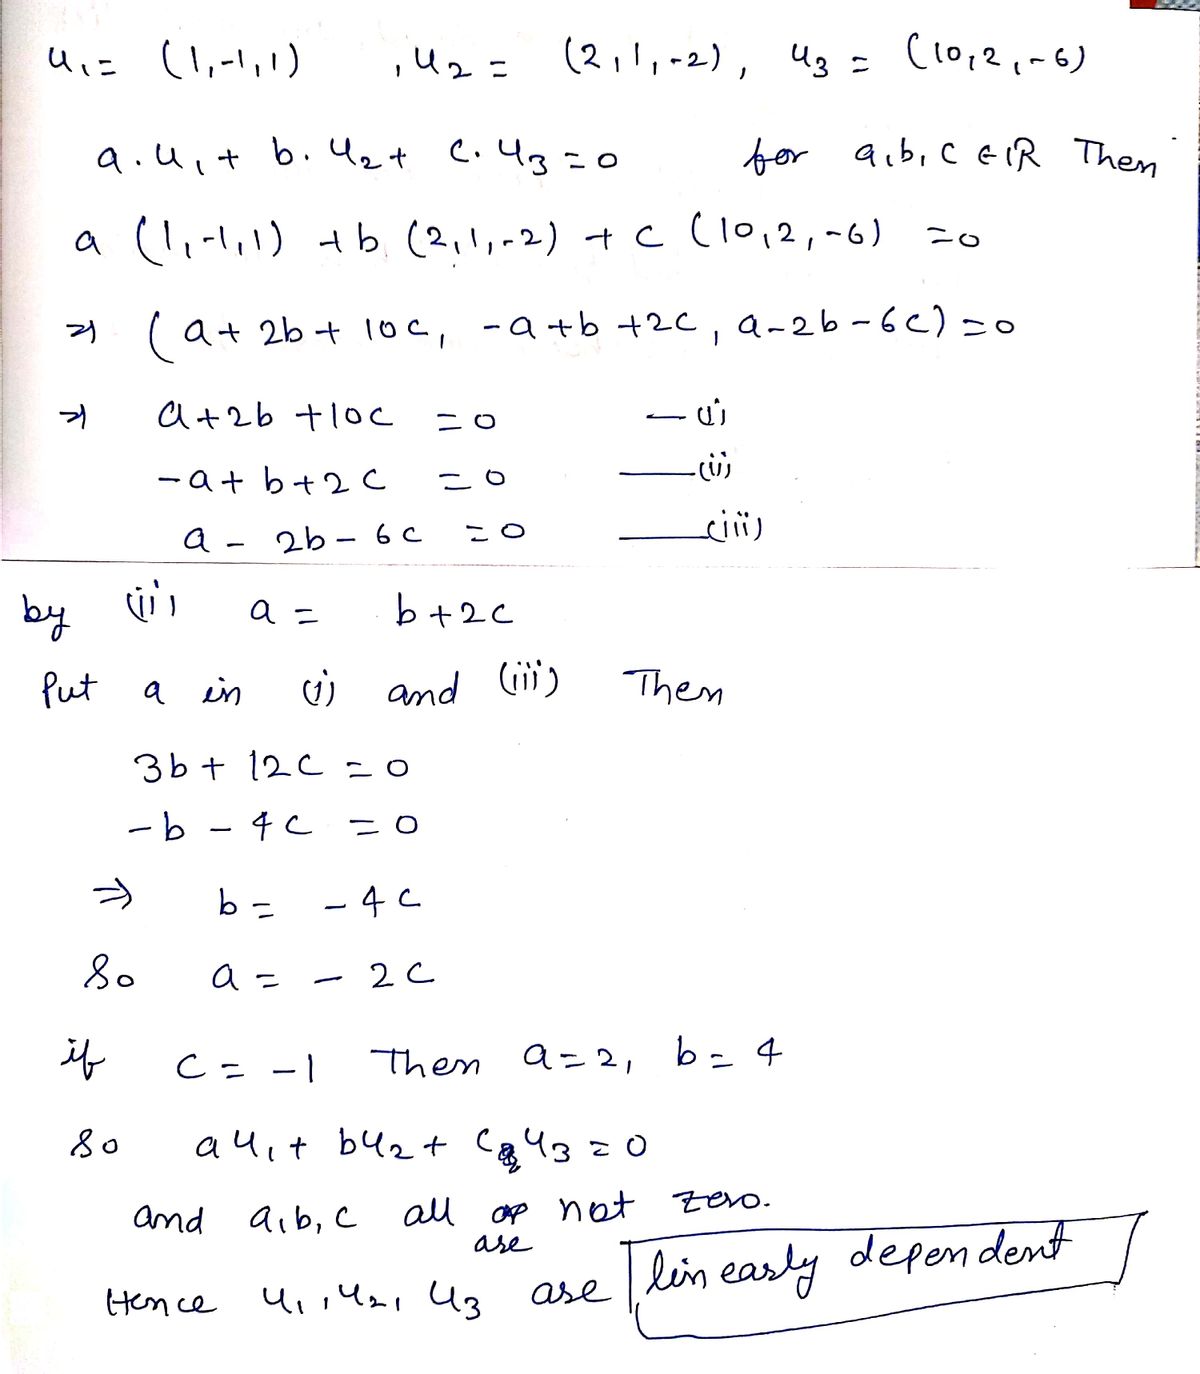 u₁ = (1,-1,1) , u₂ = (2,1,-2), u₃ = (10,2,-6)
a.u₁ + b.u₂ + c.u₃ = 0 for a,b,c ∈ ℝ Then
a (1,-1,1) + b (2,1,-2) + c (10,2,-6) = 0
⇒ (a + 2b + 10c, -a + b + 2c, a - 2b - 6c) = 0
⇒ a + 2b + 10c = 0 — (i)
-a + b + 2c = 0 — (ii)
a - 2b - 6c = 0 — (iii)
by (ii) a = b + 2c
Put a in (i) and (iii) Then
3b + 12c = 0
-b - 4c = 0
⇒ b = -4c
So a = -2c
if c = -1 Then a = 2, b = 4
so au₁ + bu₂ + cu₃ = 0
and a,b,c all are not zero.
Hence u₁, u₂, u₃ are linearly dependent